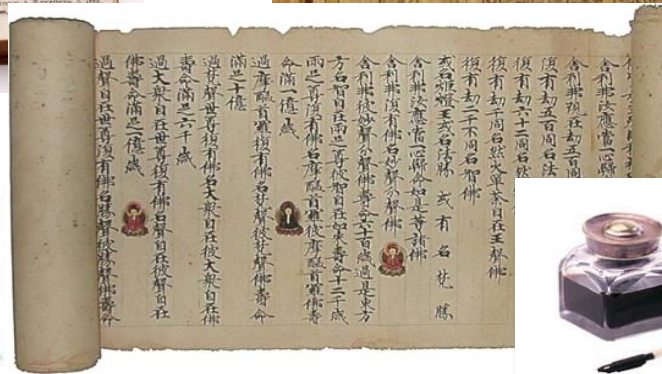 舍利弗汝應當一心歸
舍利弗現在劫五百同
復有劫五百同名法
復有劫六十二同名
復有劫二千同名然火單荼自在王聲佛
復有劫二千不同名智佛
或名炬燈王或名法勝 或有名梵勝
舍利弗汝應當一心歸命如是等諸佛
舍利弗復有佛名妙聲分聲佛
舍利弗彼妙聲分聲佛壽命六十百歲過是東方
方名智自在兩足尊彼智自在如來壽命十二千歲
兩足尊復有佛名摩醯首羅彼摩醯首羅佛壽
命滿一億歲
過摩醯首羅復有佛名梵聲彼梵聲佛壽命
滿足十億
過梵聲世尊復有佛名大眾自在彼大眾自在佛
壽命滿足六千歲
過大眾自在世尊復有佛名聲自在彼聲自在
佛壽命滿足一億歲
過聲自在世尊復有佛名勝聲彼勝聲佛壽命